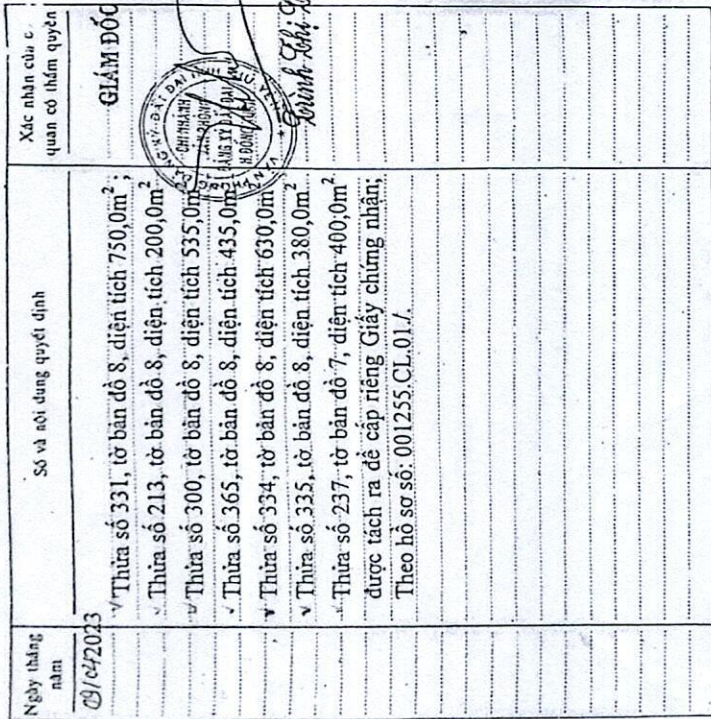 Ngày tháng năm
Số và nội dung quyết định
Xác nhận của c quan có thẩm quyền
09/04/2023
✓ Thửa số 331, tờ bản đồ 8, diện tích 750,0m²;
✓ Thửa số 213, tờ bản đồ 8, diện tích 200,0m²
✓ Thửa số 300, tờ bản đồ 8, diện tích 535,0m
✓ Thửa số 365, tờ bản đồ 8, diện tích 435,0m
✓ Thửa số 334, tờ bản đồ 8, diện tích 630,0m²
✓ Thửa số 335, tờ bản đồ 8, diện tích 380,0m²
✓ Thửa số 237, tờ bản đồ 7, diện tích 400,0m²
được tách ra để cấp riêng Giấy chứng nhận;
Theo hồ sơ số: 001255.CL.01./.
GIÁM ĐỐC
CHI NHÁNH
ĐĂNG KÝ ĐẤT ĐAI
Trịnh Thị